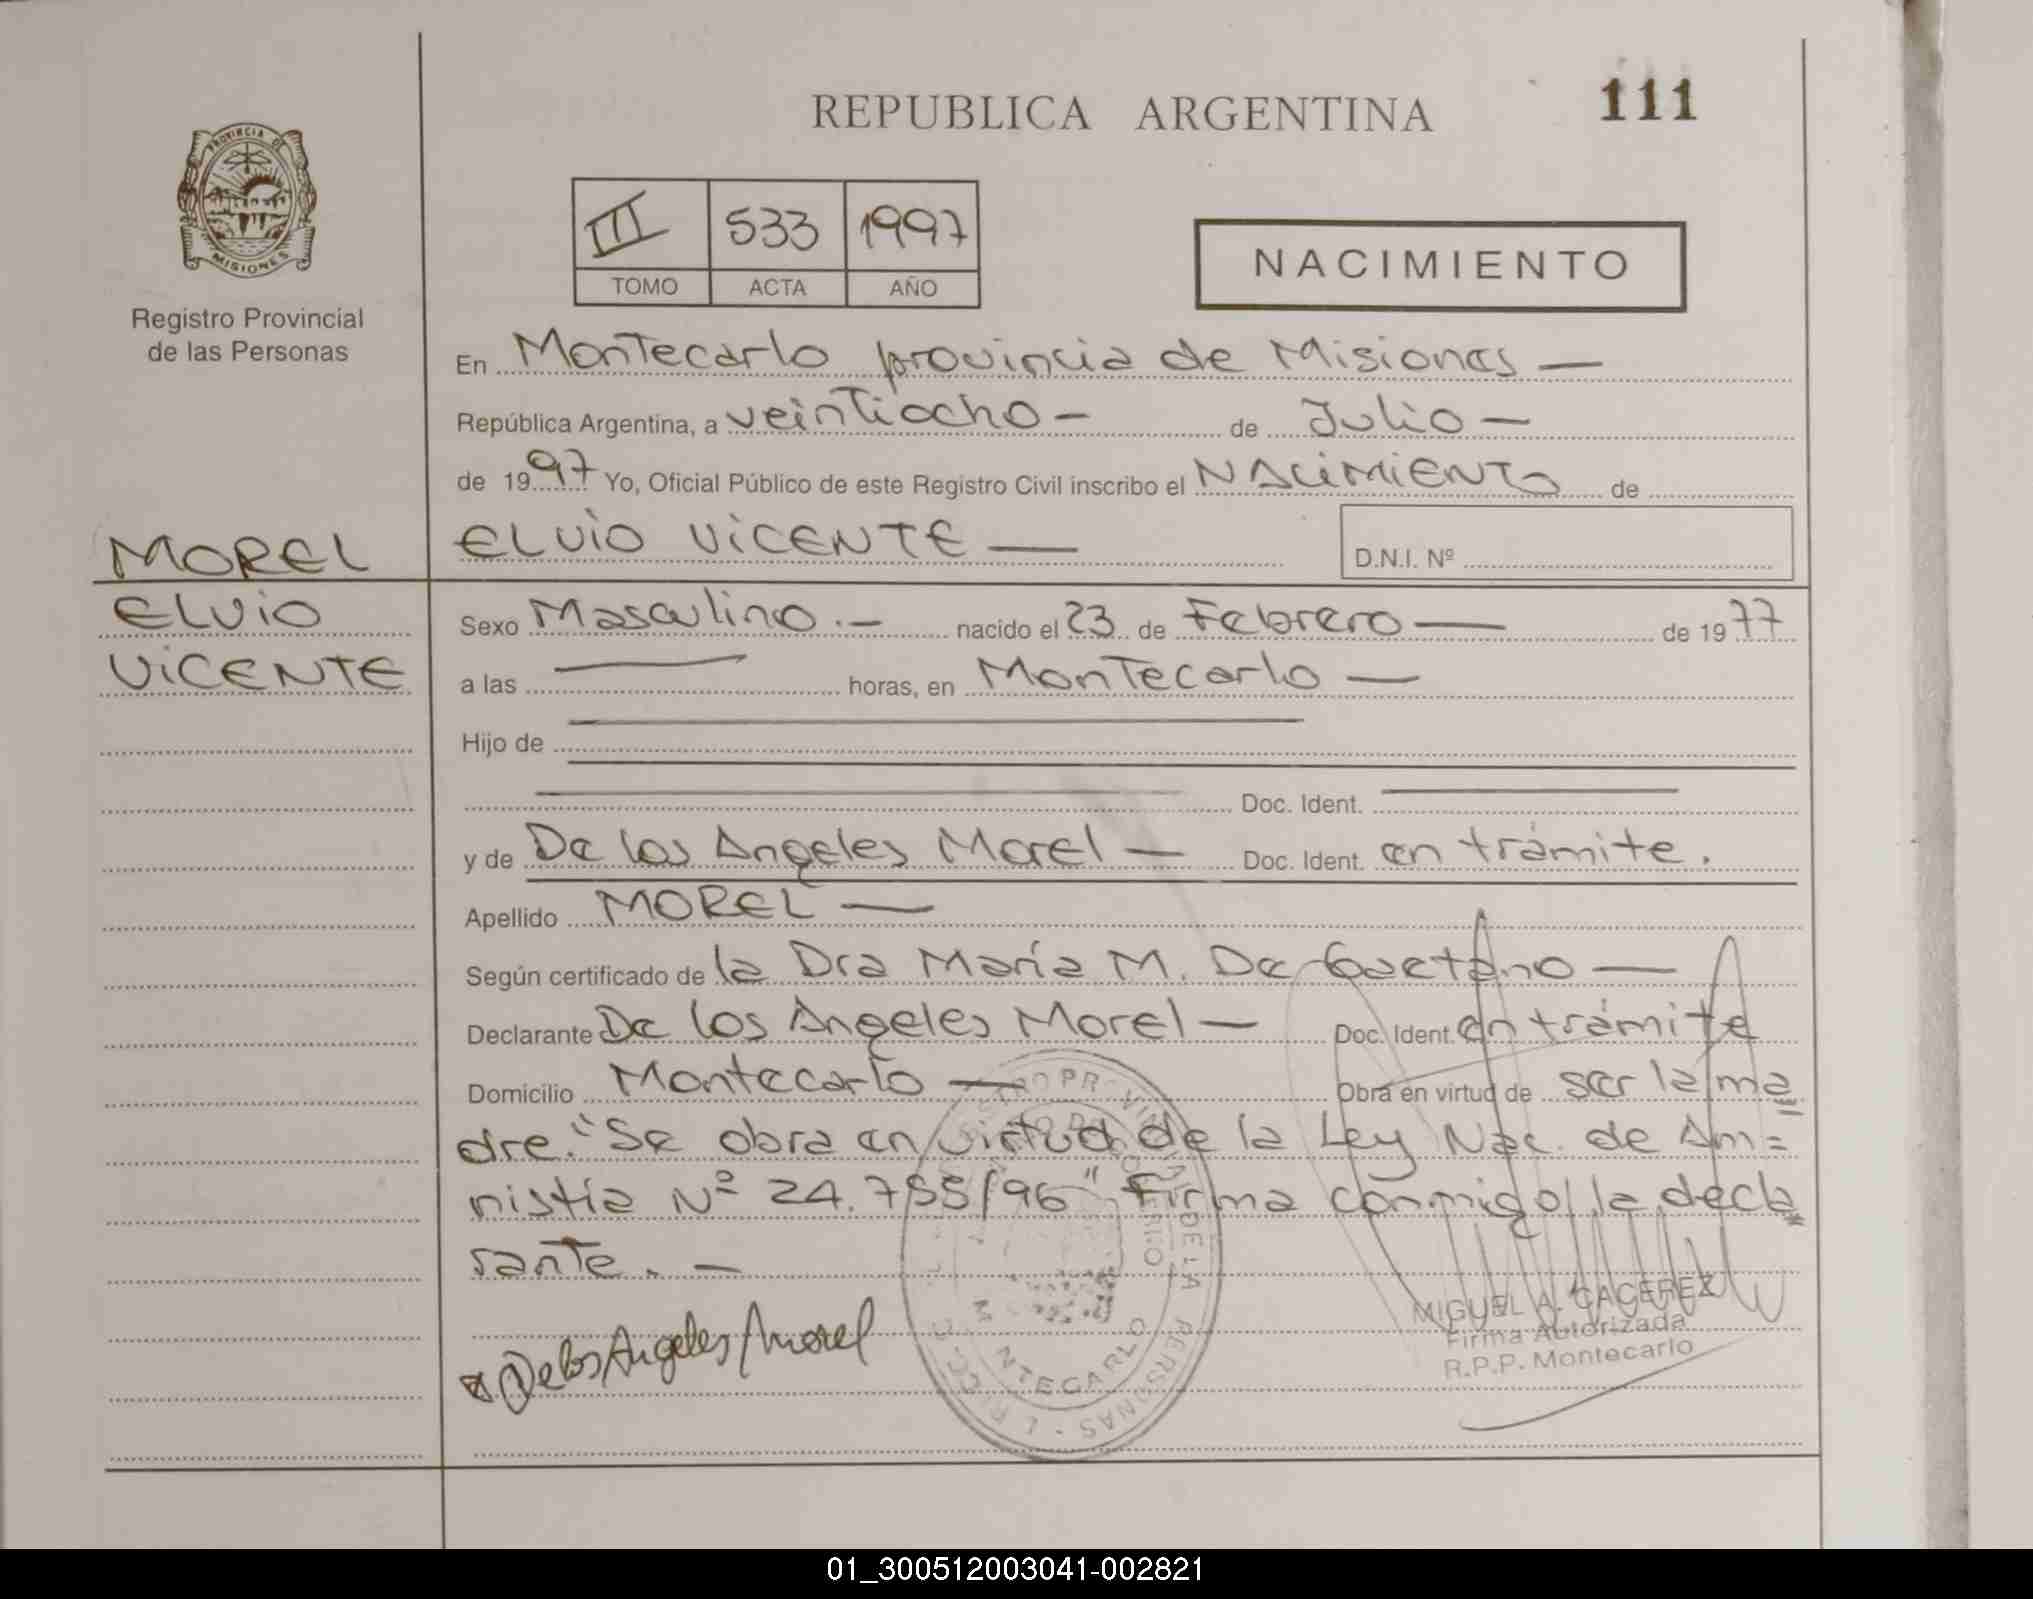 REPUBLICA ARGENTINA
111
PROVINCIA DE
MISIONES
Registro Provincial
de las Personas
III 533 1997
TOMO ACTA AÑO
NACIMIENTO
En Montecarlo provincia de Misiones —
República Argentina, a veintiocho — de Julio —
de 1997 Yo, Oficial Público de este Registro Civil inscribo el NACIMIENTO de
ELVIO VICENTE —
D.N.I. Nº
MOREL
ELVIO
VICENTE
Sexo Masculino .— nacido el 23 de Febrero — de 1977
a las — horas, en Montecarlo —
Hijo de —
— Doc. Ident. —
y de De los Angeles Morel — Doc. Ident. en trámite.
Apellido MOREL —
Según certificado de la Dra María M. De Gaetano —
Declarante De los Angeles Morel — Doc. Ident. en trámite
Domicilio Montecarlo — Obra en virtud de ser la ma=
dre. "Se obra en virtud de la Ley Nac. de Am=
nistía Nº 24.755/96" Firma conmigo la decla
rante. —
De los Angeles Morel
MIGUEL A. CACEREZ
Firma Autorizada
R.P.P. Montecarlo
01_300512003041-002821